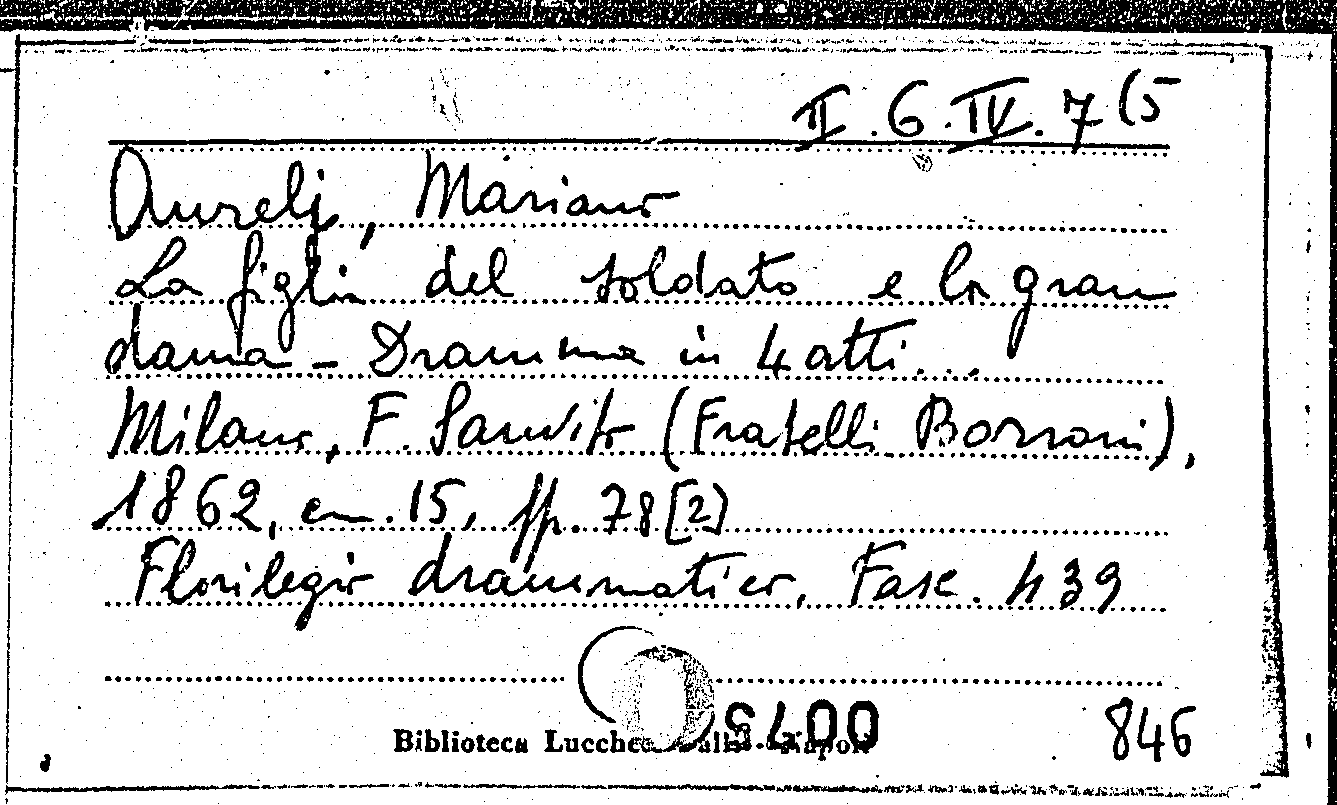 II.6.IV.7(5
Aurelj, Mariano
La figlia del soldato e la gran
dama - Dramma in 4 atti...
Milano, F. Sanvito (Fratelli Borroni),
1862, cm. 15, pp. 78[2]
Florilegio drammatico, Fasc. 439
Biblioteca Lucchesi Palli - Napoli
846